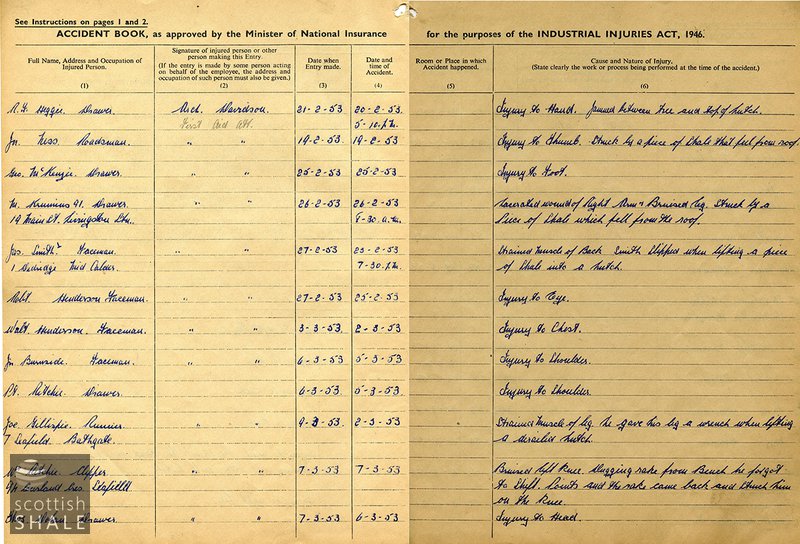 See Instructions on pages 1 and 2.
ACCIDENT BOOK, as approved by the Minister of National Insurance for the purposes of the INDUSTRIAL INJURIES ACT, 1946.
Full Name, Address and Occupation of
Injured Person.
(1)
Signature of injured person or other
person making this Entry.
(If the entry is made by some person acting
on behalf of the employee, the address and
occupation of such person must also be given.)
(2)
Date when
Entry made.
(3)
Date and
time of
Accident.
(4)
Room or Place in which
Accident happened.
(5)
Cause and Nature of Injury.
(State clearly the work or process being performed at the time of the accident.)
(6)
Heggie Drawer. Davidson. 21-2-53 20-2-53. Injury to Hand. Jammed between tree and top of hutch.
First Aid Att. 5-10.p.m.
Jn. Roadsman. " " 19-2-53 19-2-53 Injury to Thumb. Struck by a piece of Shale that fell from roof.
Geo. McKenzie. Drawer. " " 25-2-53 25-2-53. Injury to Foot.
M. Drawer. " " 26-2-53 26-2-53 Lacerated wound of Right Arm & Bruised leg. Struck by a
19 Main St. Livingston Stn. 9-30.a.m. Piece of Shale which fell from the roof.
Jas. Smith Faceman. " " 27-2-53 25-2-53 Strained Muscle of Back. Smith Slipped when lifting a piece
1 Mid Calder. 7-30.p.m. of Shale into a hutch.
Robt Henderson Faceman. " " 27-2-53 25-2-53 Injury to Eye.
Walt. Henderson. Faceman. " " 3-3-53 2-3-53 Injury to Chest.
Jn Burnside. Faceman. " " 6-3-53 5-3-53 Injury to Shoulder.
Ritchie Drawer. 6-3-53 5-3-53 Injury to Shoulder.
Joe Gillespie. Runner. " " 9-3-53. 2-3-53 Strained Muscle of leg. he gave his leg a wrench when lifting
7 Leafield. Bathgate. a derailed hutch.
Wm Ritchie. " " 7-3-53 7-3-53 Bruised left Knee. rake from Bench he forgot
to Shift Points and the rake came back and Struck him
on the Knee.
Drawer. " " 7-3-53 6-3-53 Injury to Head.
scottish
SHALE